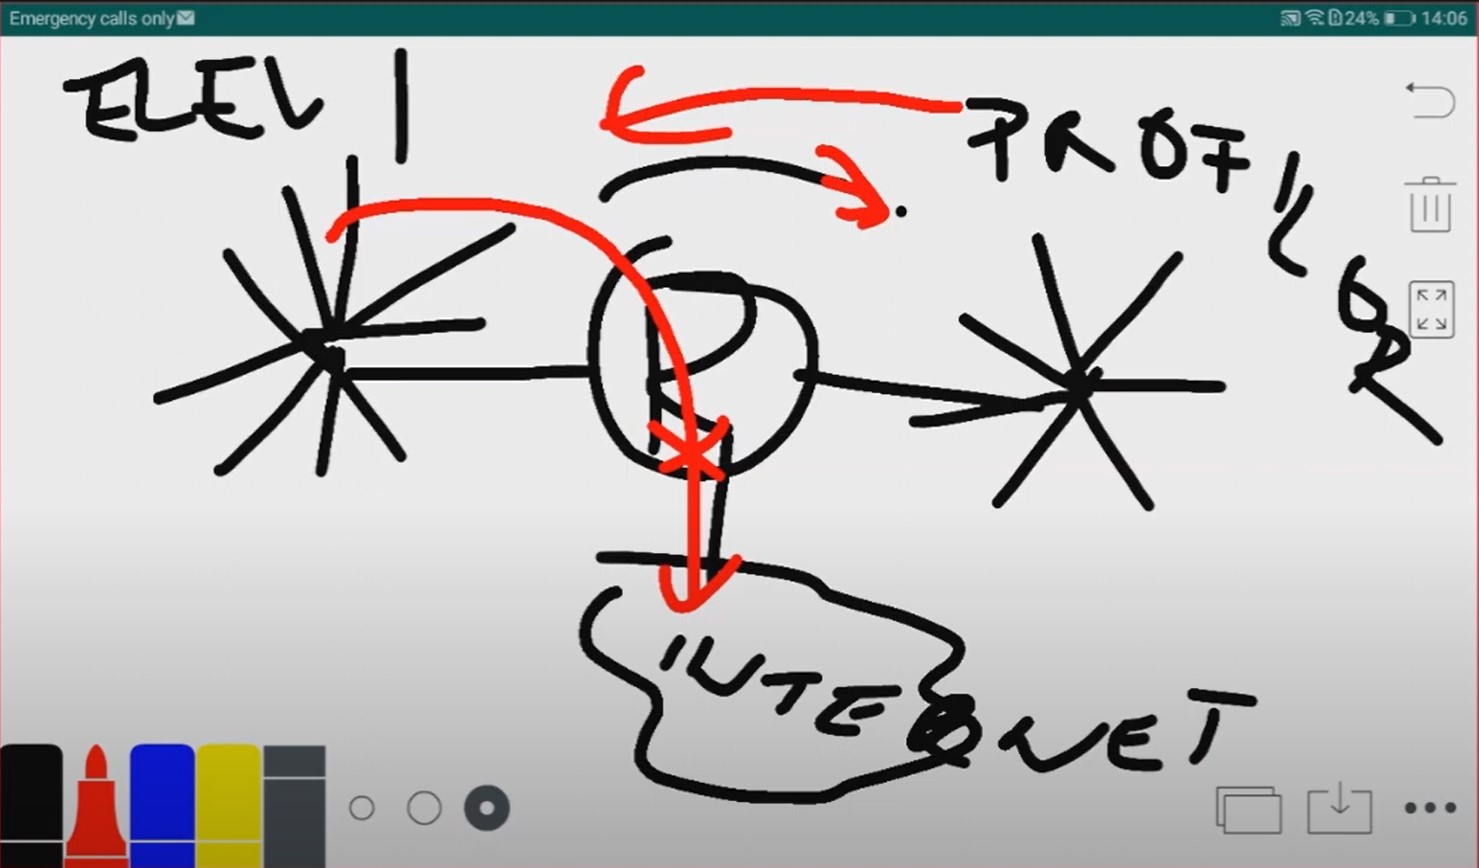 Emergency calls only 24% 14:06
ELEVI
PROFILOR
R
INTERNET